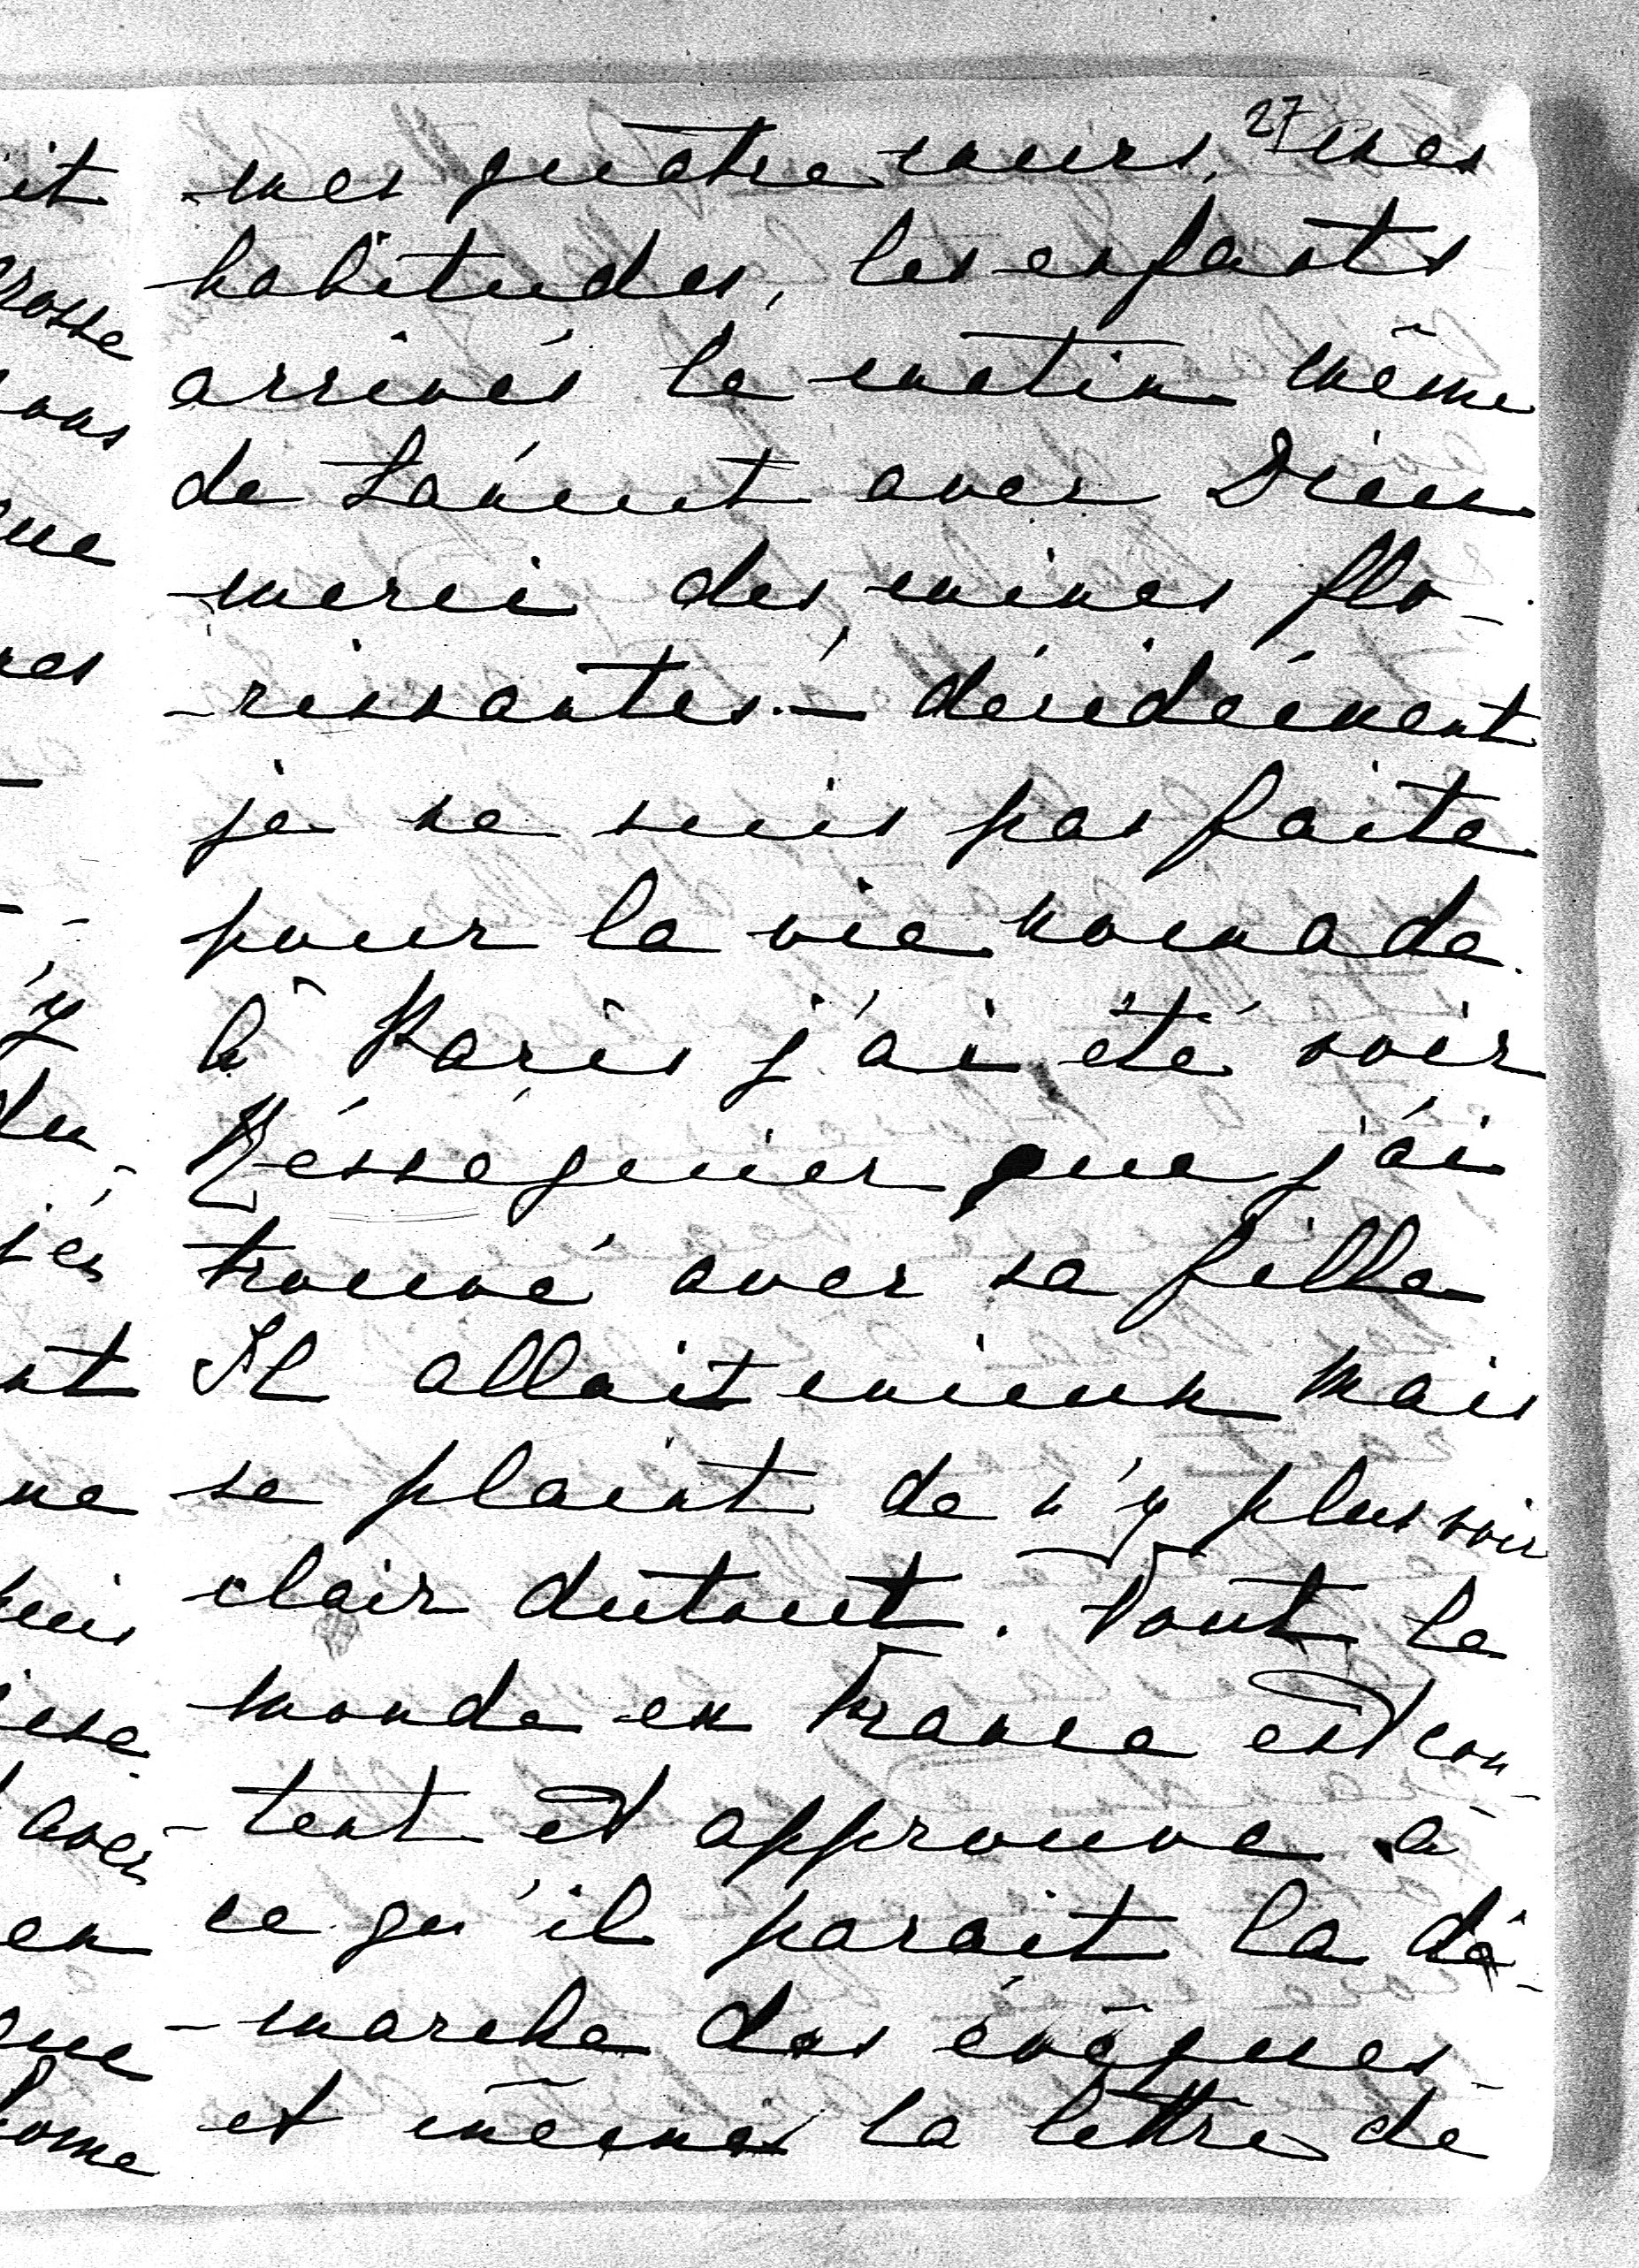 27
mes quatre murs, mes
habitudes, les enfants
arrivés le matin même
de Lanent avec Dieu
merci des mines flo-
-rissantes. — décidément
je ne suis pas faite
pour la vie nomade.
à Paris j'ai été voir
Rességuier que j'ai
trouvé avec sa fille
Il allait mieux mais
se plaint de n'y plus voir
clair dutout. Tout le
monde en France est con-
-tent et approuve à
ce qu'il parait la dé-
-marche des évêques
et même la lettre de